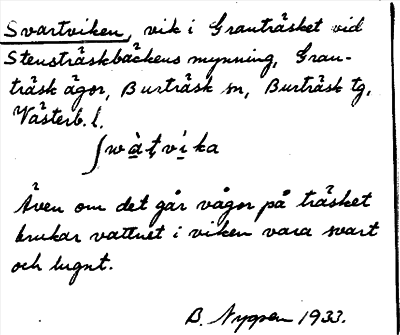 Svartviken, vik i Granträsket vid
Stensträskbäckens mynning, Gran-
träsk ägor, Burträsk sn, Burträsk tg,
Västerb. l.
ʃwàṭvi̱ka
Även om det går vågor på träsket
brukar vattnet i viken vara svart
och lugnt.
B. Nygren 1933.